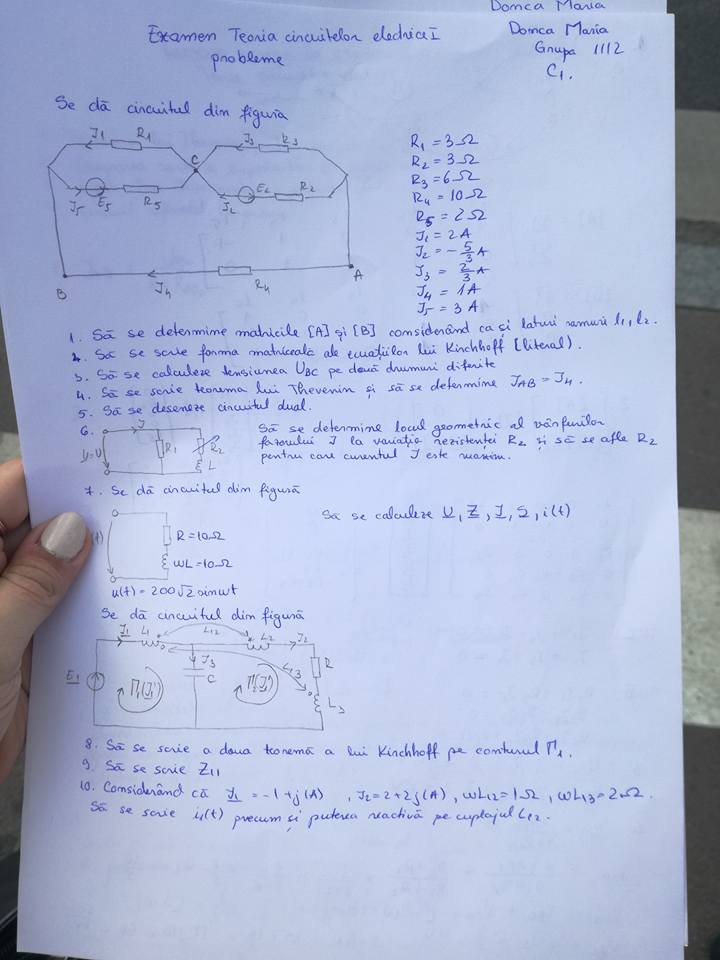 Domca Maria
Examen Teoria circuitelor electrice I
probleme
Domca Maria
Grupa 1112
C1.
Se dă circuitul din figură
J1 R1 J3 R3
C
E5 R5 E2 R2
J5 J2
B J4 R4 A
R1 = 3Ω
R2 = 3Ω
R3 = 6Ω
R4 = 10Ω
R5 = 2Ω
J1 = 2A
J2 = -5/3 A
J3 = 2/3 A
J4 = 1A
J5 = 3A
1. Să se determine matricile [A] și [B] considerând ca și laturi ramuri l1, l2.
2. Să se scrie forma matriceală ale ecuațiilor lui Kirchhoff [literal).
3. Să se calculeze tensiunea UBC pe două drumuri diferite
4. Să se scrie teorema lui Thevenin și să se determine JAB = J4.
5. Să se deseneze circuitul dual.
6.
J
U=U R1 R2
L
Să se determine locul geometric al vârfurilor
fazorului J la variația rezistenței R2 și să se afle R2
pentru care curentul J este maxim.
7. Se dă circuitul din figură
Să se calculeze U, Z, J, S, i(t)
R=10Ω
ωL=10Ω
u(t) = 200√2 sinωt
Se dă circuitul din figură
J1 L1 L12 L2 J2
J3 L13 R
E1 Γ1(J1') C Γ2(J2') L3
8. Să se scrie a doua teoremă a lui Kirchhoff pe conturul Γ1.
9. Să se scrie Z11
10. Considerând că J1 = -1+j(A) , J2=2+2j(A) , ωL12=1Ω , ωL13=2Ω.
Să se scrie i1(t) precum și puterea reactivă pe cuplajul L12.